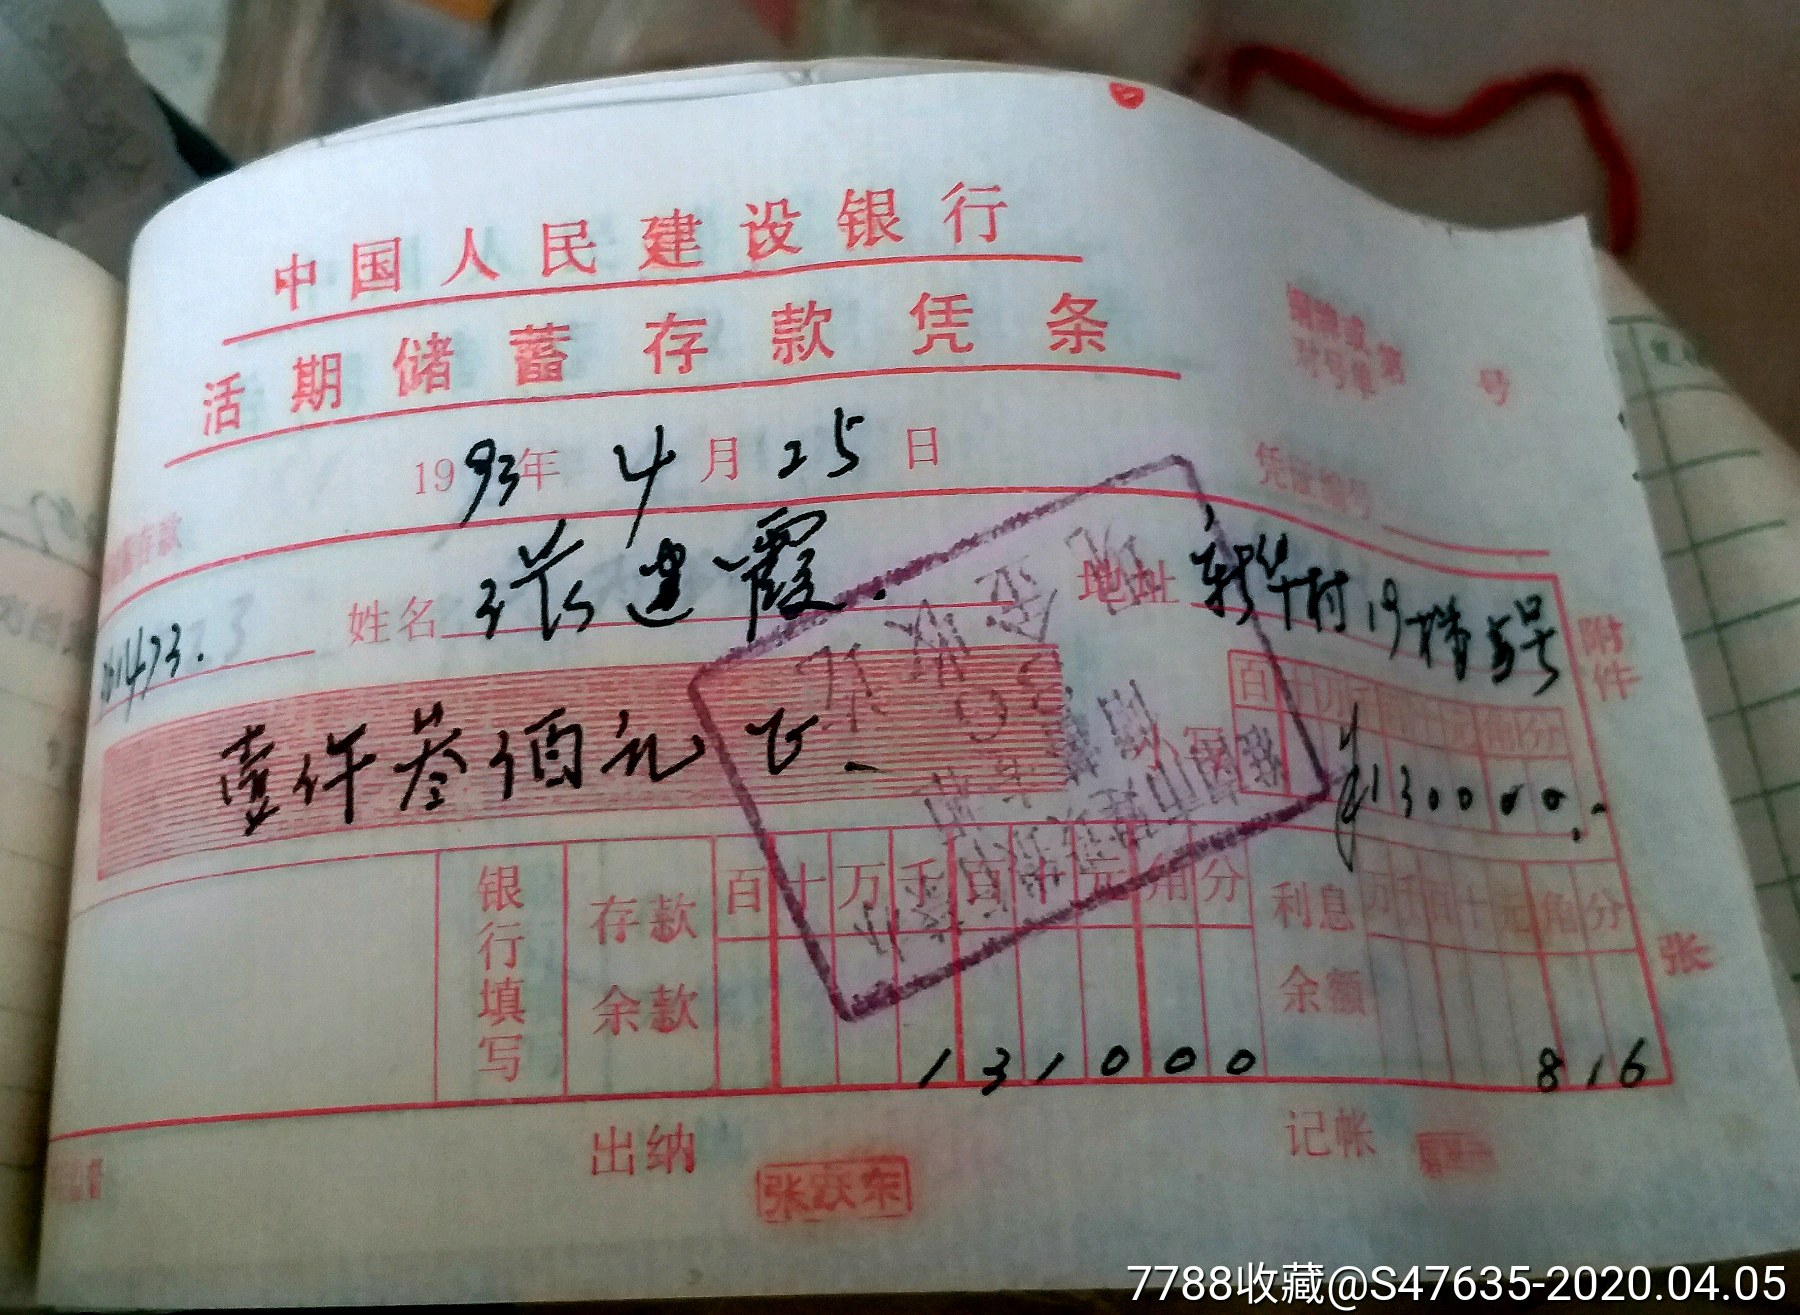 中国人民建设银行
活期储蓄存款凭条
铜牌或
对号单 第 号
1993年 4月 25日
凭证编号
姓名 张建霞. 地址 新华村19幢5号
附件 张
壹仟叁佰元正
百十万千百十元角分
¥130000
银行填写
存款余款
百十万千百十元角分
利息余额
万千百十元角分
131000 0
816
出纳
张跃东
记帐
7788收藏@S47635-2020.04.05